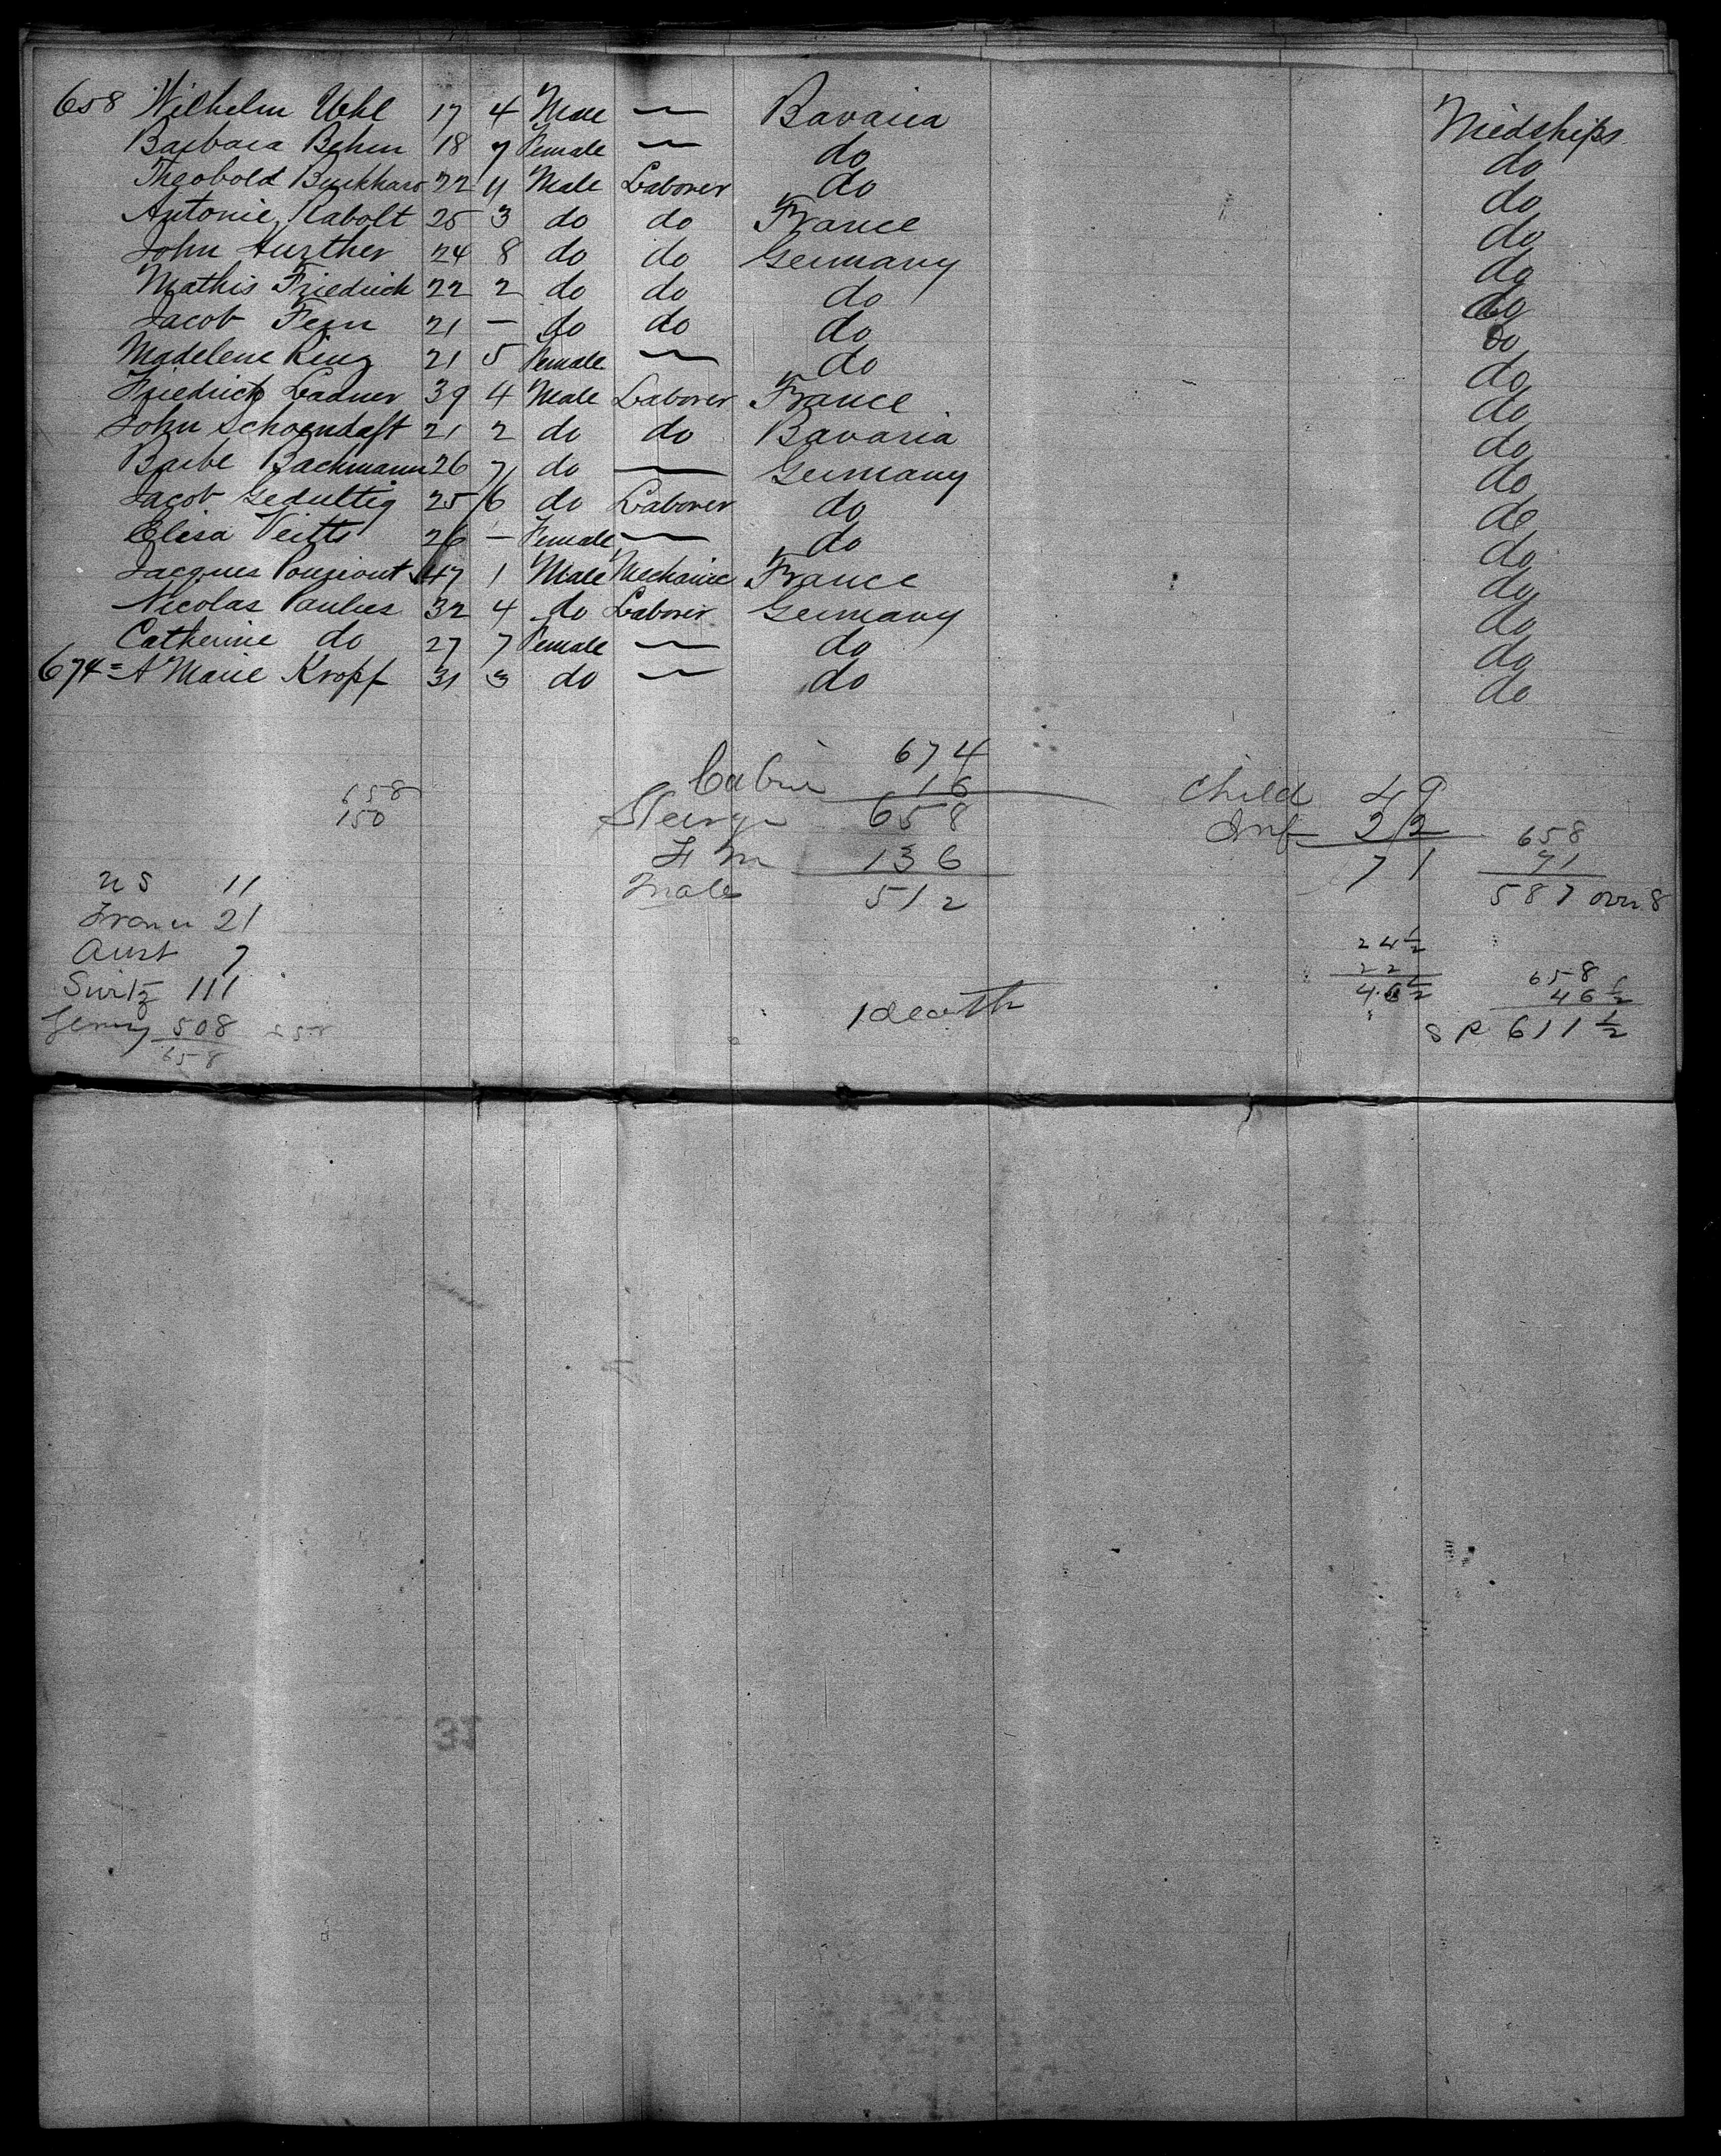 658 Wilhelm Uhl 17 4 Male — Bavaria Midships
Barbara Behm 18 7 Female — do do
Theobold Burkhard 22 11 Male Laborer do do
Antonie Rabolt 25 3 do do France do
John Hurther 24 8 do do Germany do
Mathis Friedrich 22 2 do do do do
Jacob Fern 21 — do do do do
Madelene 21 5 Female — do do
Friedrich Ladner 39 4 Male Laborer France do
John Schoendaft 21 2 do do Bavaria do
Barbe Bachmann 26 7 do — Germany do
Jacob Gedultig 25 6 do Laborer do do
Elisa Veitts 26 — Female — do do
Jacques 47 1 Male Mechanic France do
Nicolas Paulus 32 4 do Laborer Germany do
Catherine do 27 7 Female — do do
674= A Marie Kropf 31 3 do — do do
674
Cabin 16
Steerge 658
Fm 136
Male 512
658
150
Child 49
Inf 22
71
658
71
587 over 8
US 11
Franc 21
Aust 7
Switz 111
Germy 508
658
1 death
24½
22
46½
658
46½
S P 611½
31